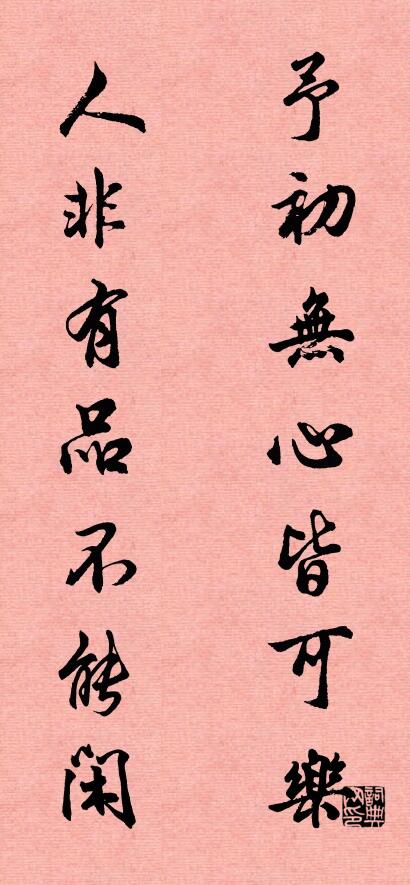 予初無心皆可樂
人非有品不能閑